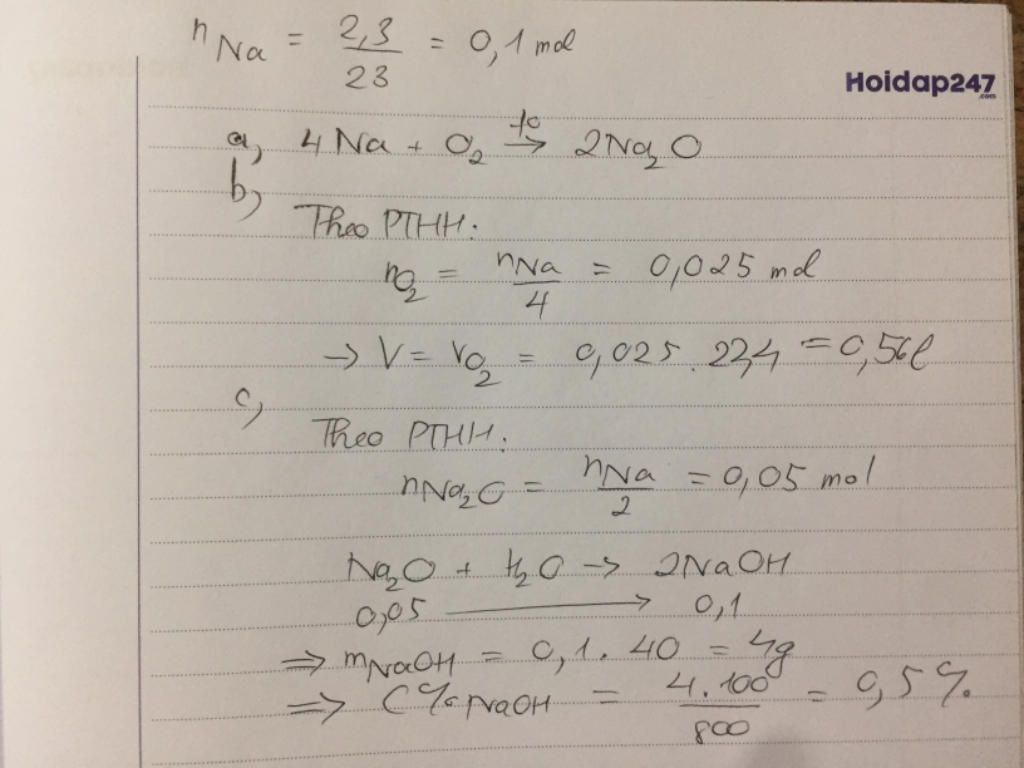 nNa = 2,3/23 = 0,1 mol
Hoidap247
.com
a, 4Na + O2 to→ 2Na2O
b,
Theo PTHH:
nO2 = nNa/4 = 0,025 mol
→ V = VO2 = 0,025 . 22,4 = 0,56l
c,
Theo PTHH:
nNa2O = nNa/2 = 0,05 mol
Na2O + H2O → 2NaOH
0,05 → 0,1
⇒ mNaOH = 0,1 . 40 = 4g
⇒ C%NaOH = 4.100/800 = 0,5%